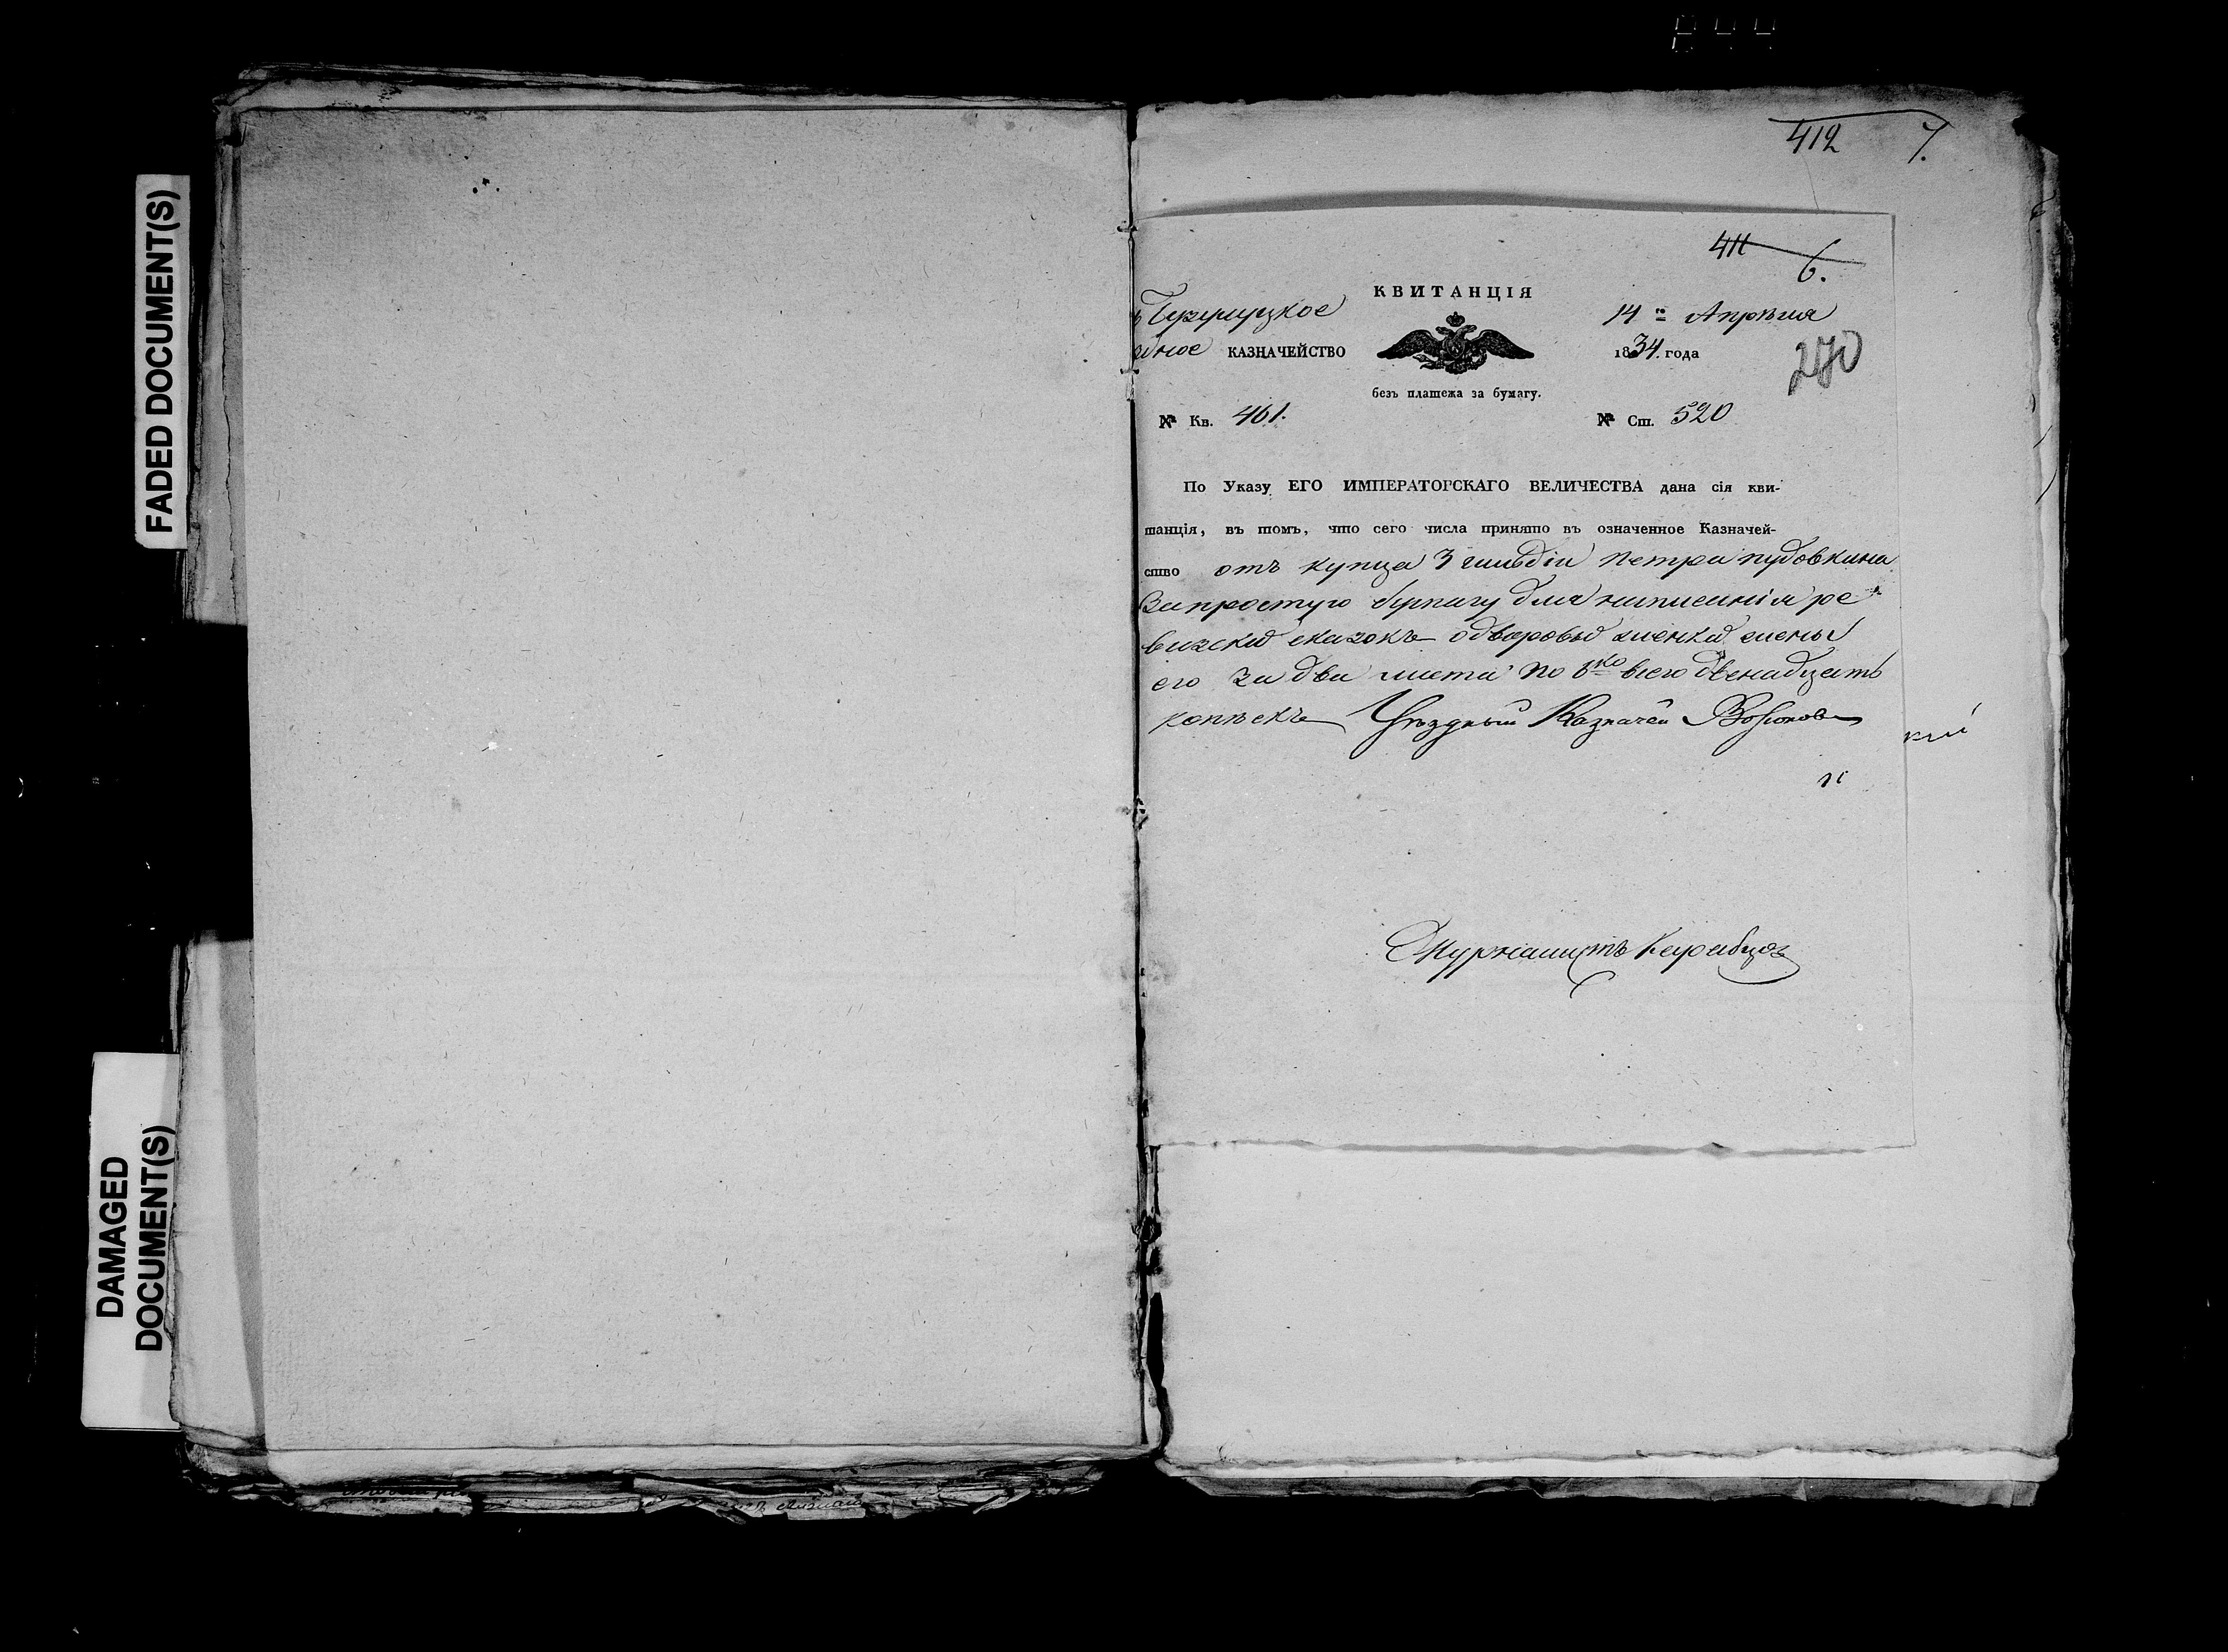 844
412 7.
FADED DOCUMENT(S)
DAMAGED
DOCUMENT(S)
411 6.
КВИТАНЦІЯ
14 Апрѣля
дное КАЗНАЧЕЙСТВО
1834. года
270
безъ платежа за бумагу.
№ Кв. 461.
№ Ст. 520
По Указу ЕГО ИМПЕРАТОРСКАГО ВЕЛИЧЕСТВА дана сія кви-
танція, въ томъ, что сего числа принято въ означенное Казначей-
ство отъ купца 3 гильдіи Петра Пудовкина
За простую бумагу для написанія ре
визскихъ сказокъ
его за два листа по 6 ко всего двенадцать
копѣекъ Уѣздный Казначей
Журналистъ